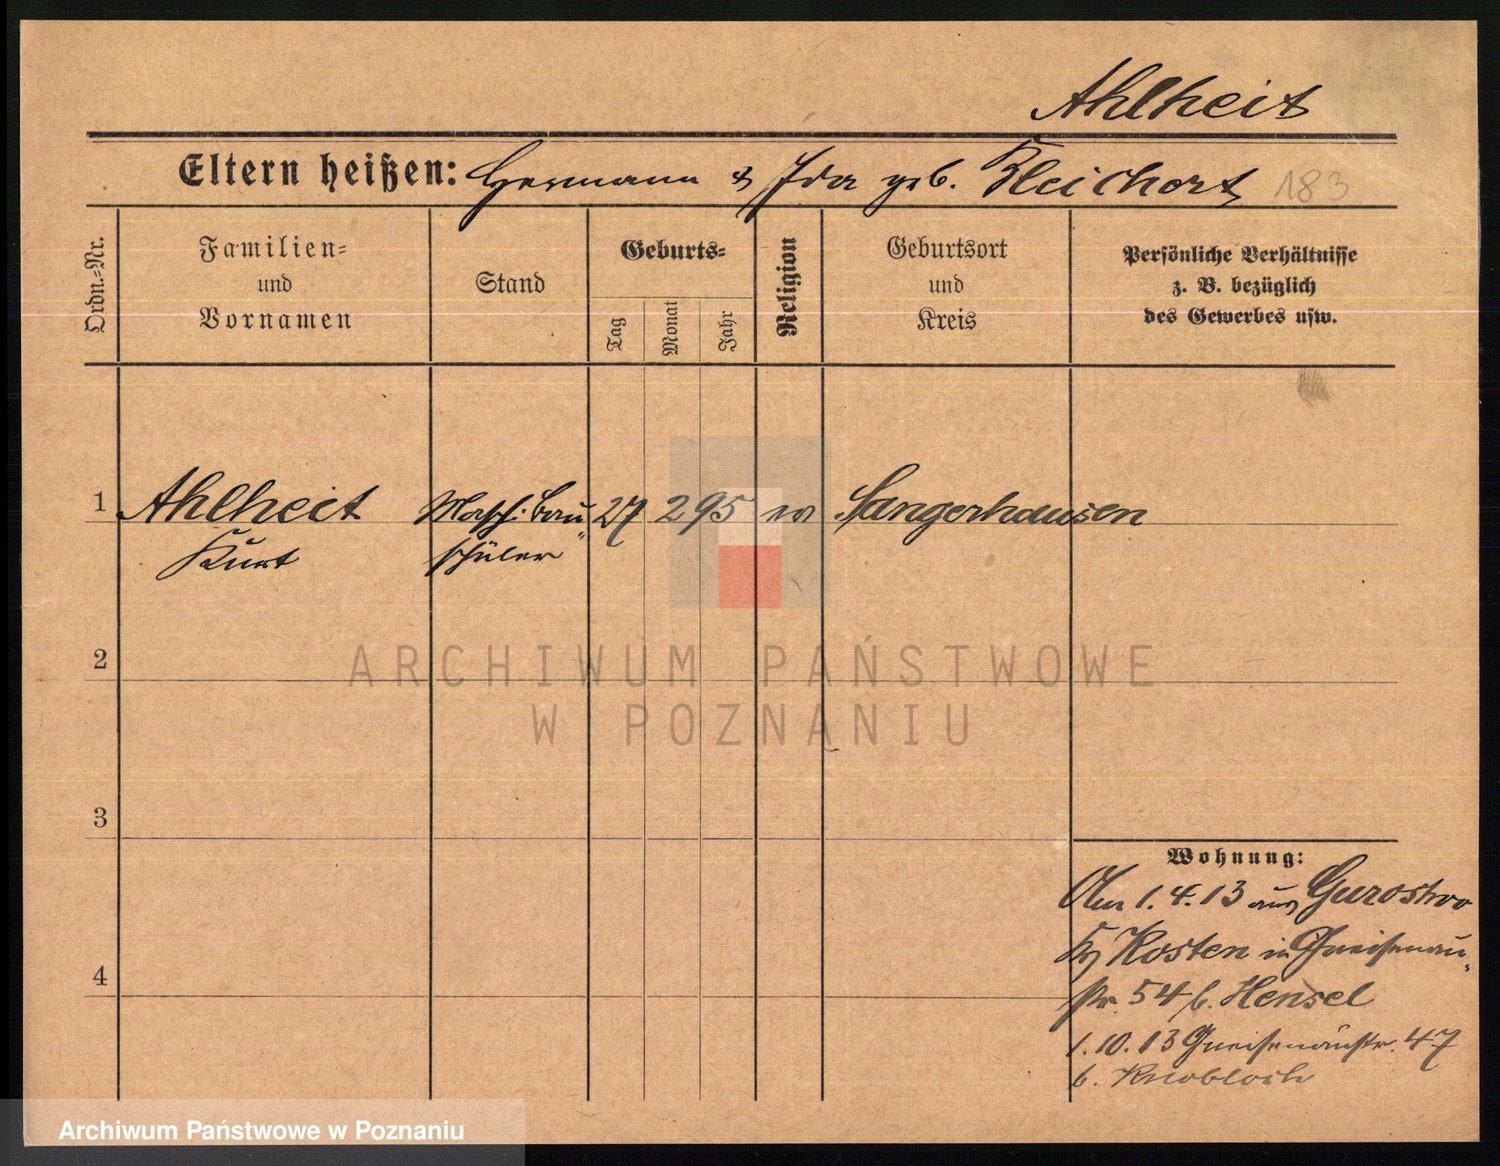 Ahlheit
Eltern heißen: Hermann & Ida geb. Bleichert 183
Ordn.-Nr.
Familien-
und
Vornamen
Stand
Geburts-
Tag
Monat
Jahr
Religion
Geburtsort
und
Kreis
Persönliche Verhältnisse
z. B. bezüglich
des Gewerbes usw.
1 Ahlheit Masch. bau 27 2 95 ev Sangerhausen
Kurt schüler
2
3
4
Wohnung:
Am 1.4.13 aus Gurostwo
Krs Kosten in Gneisenau
str. 54 b. Hensel
1.10.13 Gneisenaustr. 47
b. Knobloch
ARCHIWUM PAŃSTWOWE
W POZNANIU
Archiwum Państwowe w Poznaniu